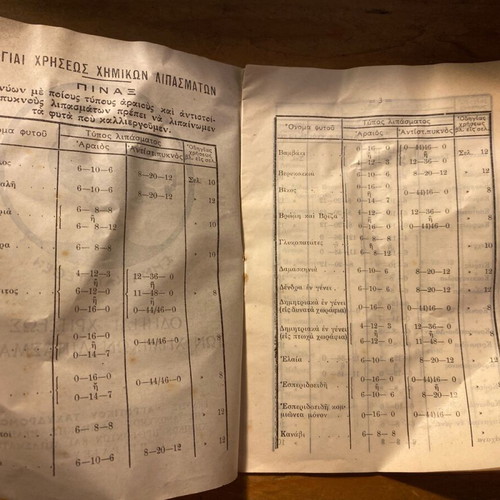 ΓΙΑΙ ΧΡΗΣΕΩΣ ΧΗΜΙΚΩΝ ΛΙΠΑΣΜΑΤΩΝ
ΠΙΝΑΞ
νύων μὲ ποίους τύπους ἀραιοὺς καὶ ἀντιστοί-
πυκνοὺς λιπασμάτων πρέπει νὰ λιπαίνωμεν
τὰ φυτὰ ποὺ καλλιεργοῦμεν.
ομα φυτοῦ Τύπος λιπάσματος Ὁδηγίας χρήσεως βλ. εἰς σελ.
Ἀραιὸς Ἀντίστ. πυκνὸς
6—10—6 8—20—12 Σελ. 10
6—10—6 8—20—12 » 12
6— 8—8
ἢ
6— 8—12
» 10
6— 8—8 » 10
4—12—3 12—36— 0
ἢ ἢ
6—12—0 11—48— 0 » 8
0—16—0 0—44/46— 0
0—16—0
ἢ 0—44/46— 0
0—14—7
0—16—0
ἢ 0—44/46— 0
0—14—7
6— 8—8 » 12
6—10—6 8—20—12 » 12
— 3 —
Ὄνομα φυτοῦ Τύπος λιπάσματος Ὁδηγίας χρήσεως βλ. εἰς σελ.
Ἀραιὸς Ἀντίστ. πυκνὸς
Βαμβάκι 0—16— 0 0—44)46— 0 Σελ. 12
ἢ ἢ
4—12— 3 12—36— 0
6—10— 6 8—20—12 » 8
Βίκος 0—16— 0 0—44)46— 0 » 12
ἢ
0—14— 7
Βρώμη καὶ Βρίζα 12—36— 0 » 8
ἢ
0—44)46— 0
Γλυκοπατάτες » 12
Δαμασκηνιὰ 6—10— 6 8—20—12 » 8
Δένδρα ἐν γένει 6—10— 6 8—20—12 » 8
Δημητριακὰ ἐν γένει
(εἰς δυνατὰ χωράφια) 0—16— 0 0—44)46— 0 » 8
Δημητριακὰ ἐν γένει
(εἰς πτωχὰ χωράφια) 12—36— 0 » 8
ἢ
11—48— 0
Ἐλαία 6—10— 6 8—20—12 » 12
Ἑσπεριδοειδῆ 0—16— 0 0—44)46— 0
ἢ ἢ
6—10— 6 8—20—12
0—16— 0 0—44)46— 0
Κανάβι 6— 8— 8